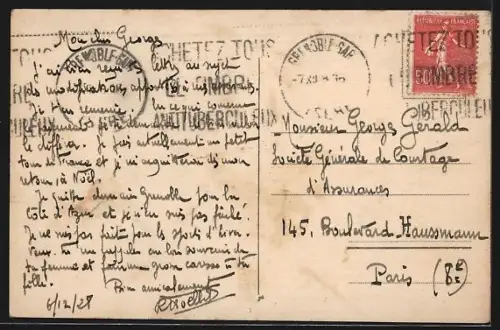 Mon cher Georges
J'ai bien reçu ta lettre au sujet
des modifications apportées à
Je t'en remercie. En ce qui concerne
payements je te
le chiffre. Je fais actuellement un petit
tour de France et je m'acquitterai dès mon
retour, à Noël.
Je quitte demain Grenoble pour la
Côte d'Azur et je n'en suis pas fâché.
Je ne suis pas fait pour les sports d'hiver.
Veux-tu me rappeler au bon souvenir de
ta femme et faire une grosse caresse à ta
fille.
Bien amicalement
6/12/28
GRENOBLE-GARE
GRENOBLE-GARE
ACHETEZ TOUS
LE TIMBRE
ANTITUBERCULEUX
RÉPUBLIQUE FRANÇAISE
50
Monsieur Georges Gérald
Société Générale de Courtage
d'Assurances
145, Boulevard Haussmann
Paris (8E)